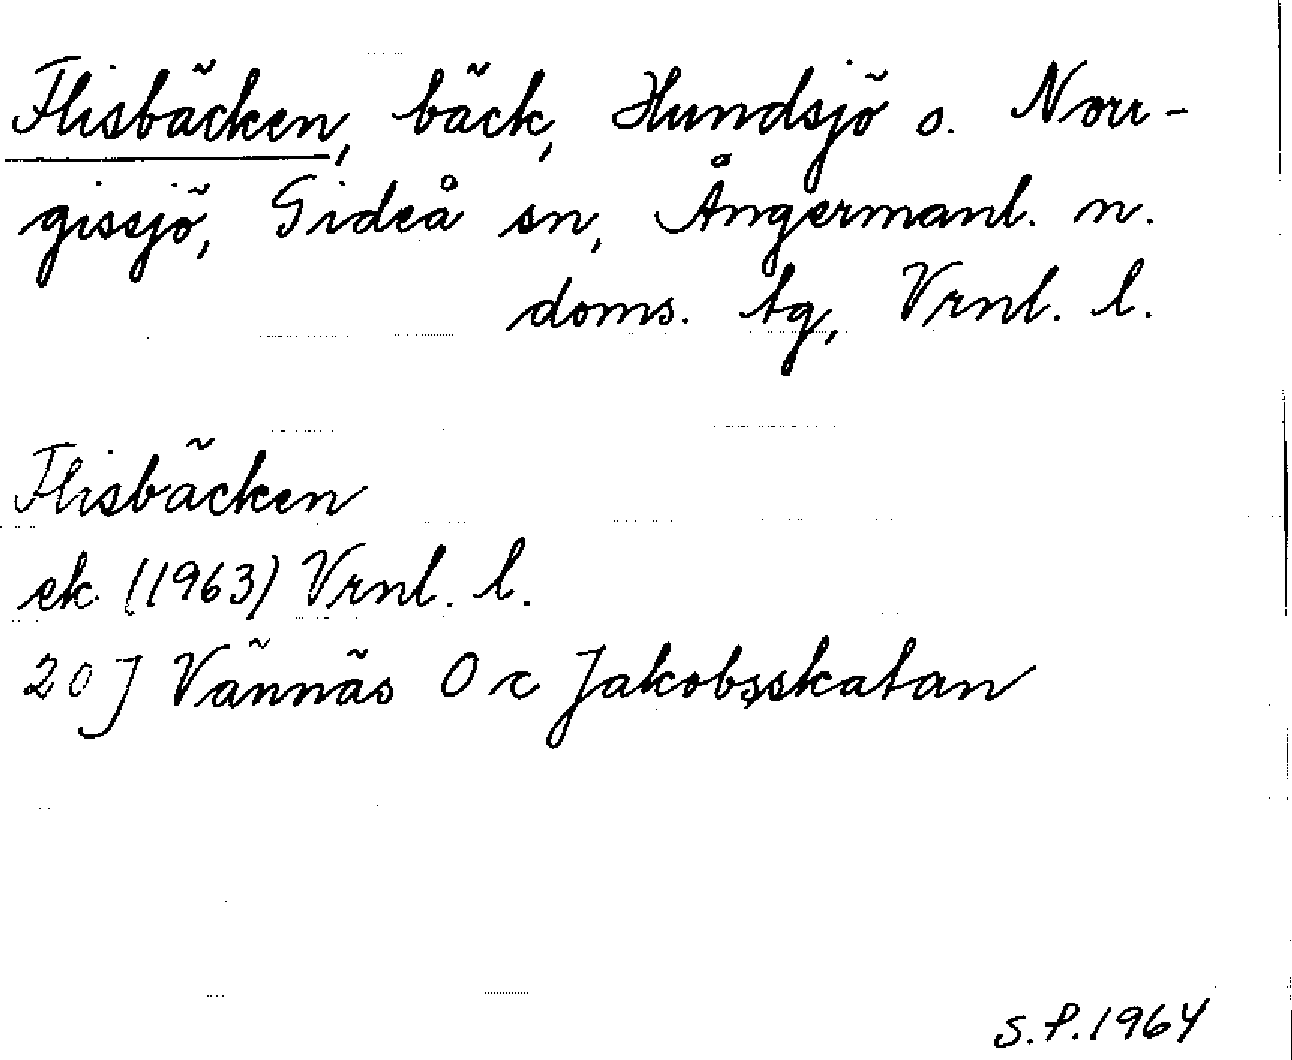 Flisbäcken, bäck, Hundsjö o. Norr-
gissjö, Gideå sn, Ångermanl. n.
doms. tg, Vrnl. l.
Flisbäcken
ek (1963) Vrnl. l.
20J Vännäs O c Jakobsskatan
S.P.1964